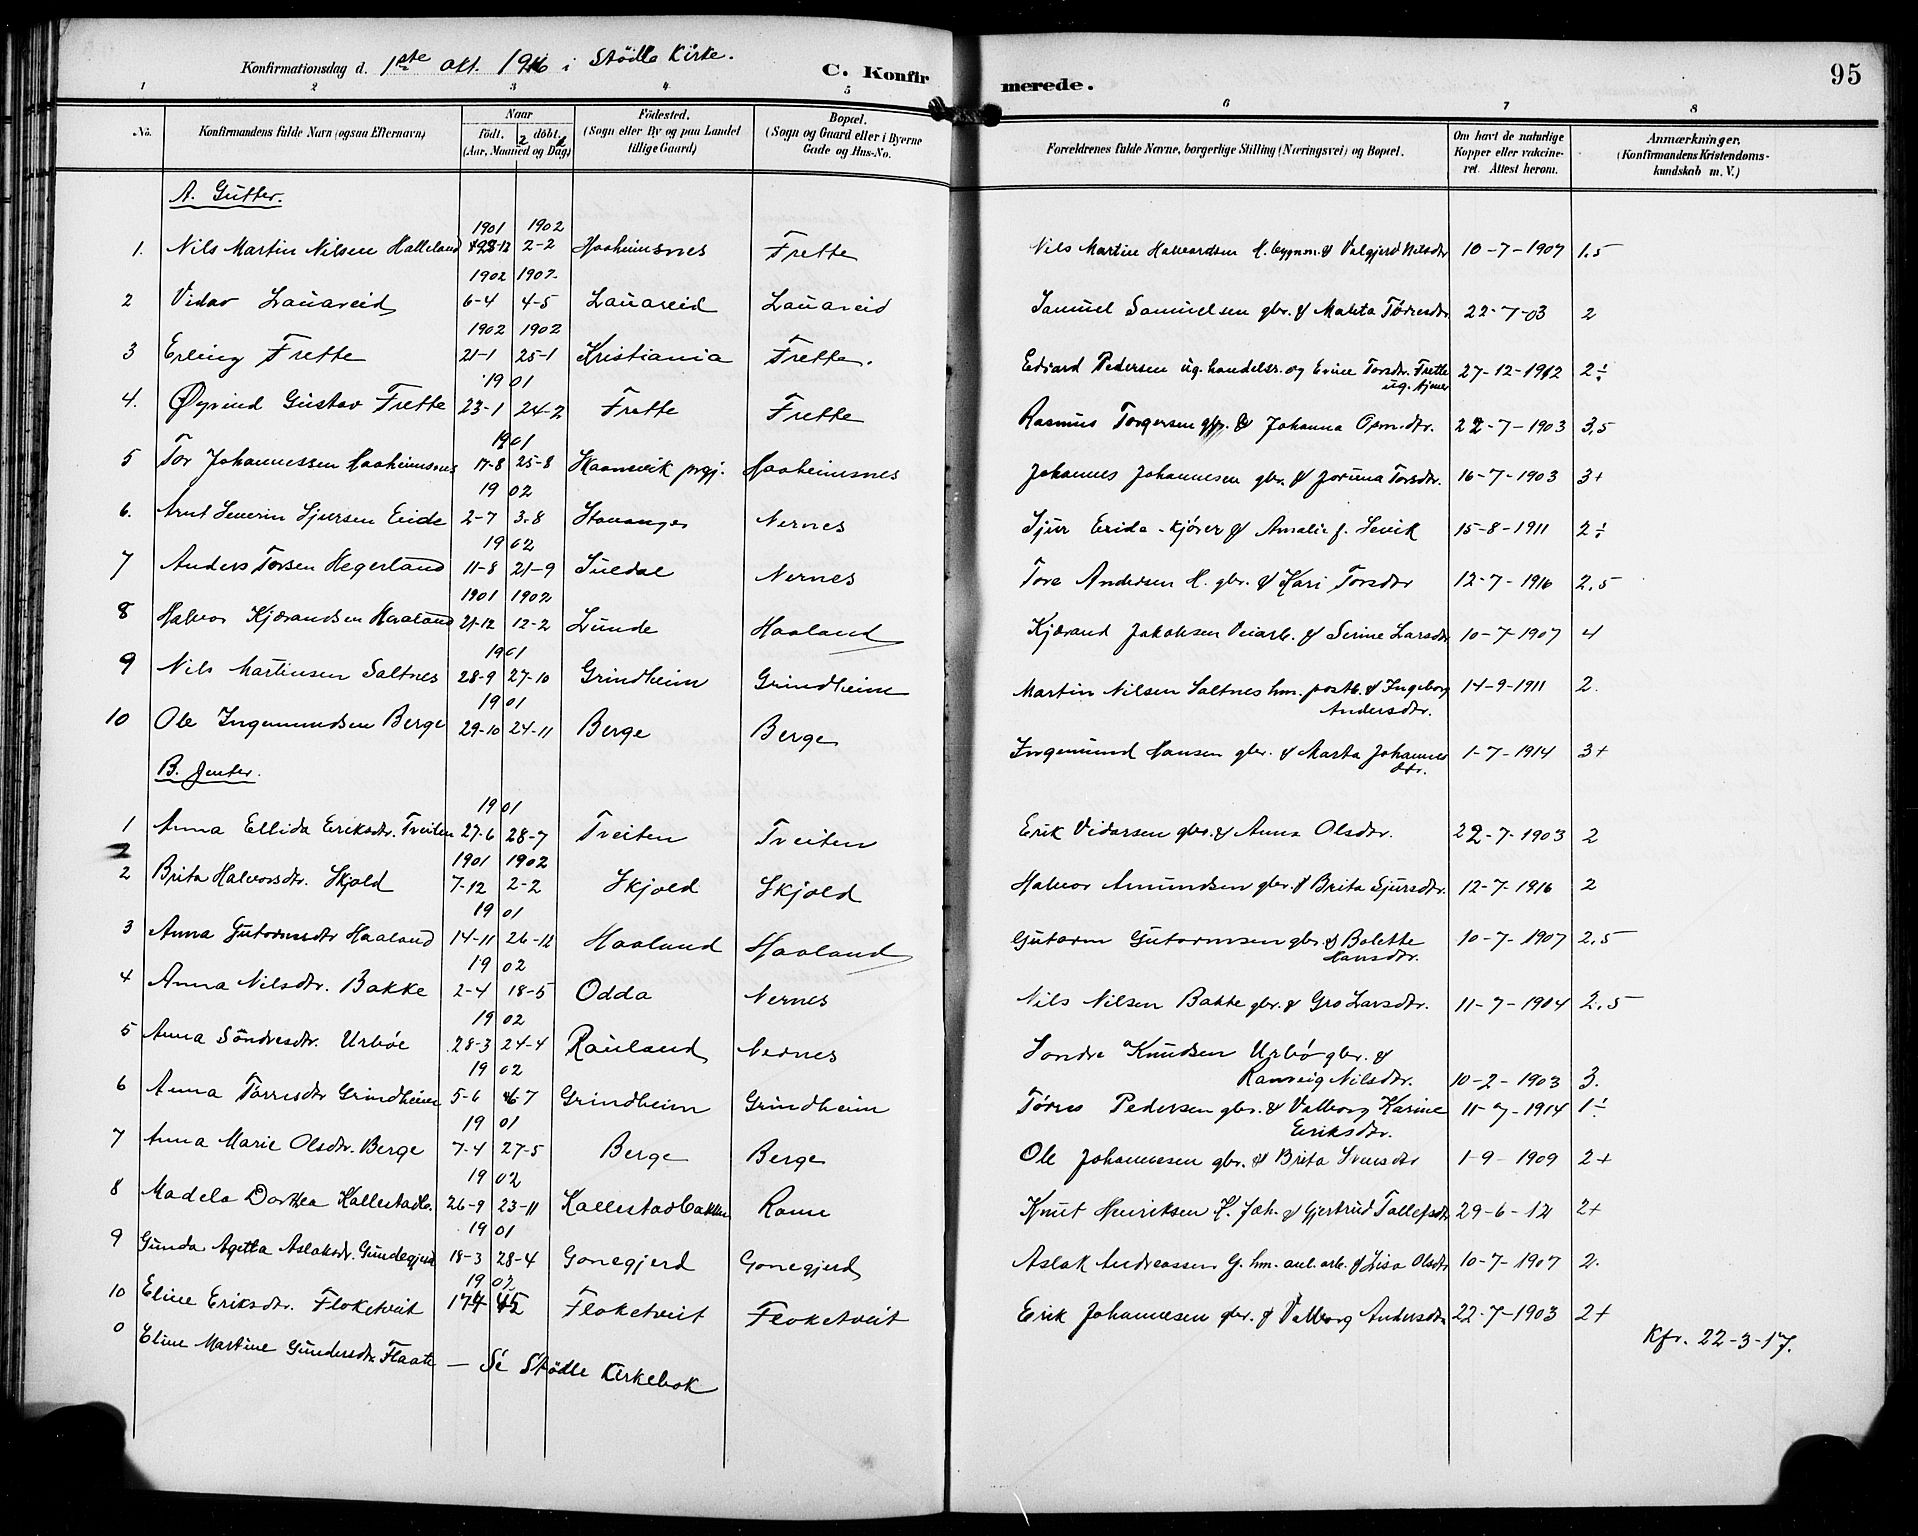 Konfirmationsdag d. 1ste okt. 1916 i Stødle Kirke.
C. Konfirmerede.
95
1 2 3 4 5 6 7 8
No.
Konfirmandens fulde Navn (ogsaa Efternavn)
Naar
født. døbt.
(Aar, Maaned og Dag)
Fødested.
(Sogn eller By og paa Landet
tillige Gaard)
Bopæl.
(Sogn og Gaard eller i Byerne
Gade og Hus-No.
Forældrenes fulde Navne, borgerlige Stilling (Næringsvei) og Bopæl.
Om havt de naturlige
Kopper eller vakcine-
ret. Attest herom.
Anmærkninger.
(Konfirmandens Kristendoms-
kundskab m. V.)
A. Gutter.
1901 1902
1. Nils Martin Nilsen Halleland 28-12 2-2 Haaheimsnes Frette Nils Martin Halvardsen H. bygnm. & Valgjerd Nilsdtr 10-7-1907 1,5
1902 1902.
2 Vidar Lauareid 6-4 4-5 Lauareid Lauareid Samuel Samuelsen gbr. & Maleta Tørresdtr 22-7-03 2
1902 1902
3 Erling Frette 21-1 25-1 Kristiania Frette. Edvard Pedersen ug. handelsr. og Evine Torsdtr. Frette 27-12-1912 2÷
ug. tjener
1901
4. Øyvind Gustav Frette 23-1 24-2 Frette Frette Rasmus Torgersen gbr. & Johanna Osm.dtr. 22-7-1903 3,5
1901
5 Tor Johannessen Haaheimsnes 17-8 25-8 Skaanevik prgj. Haaheimsnes Johannes Johannesen gbr. & Joruna Torsdtr. 16-7-1903 3+
1902
6. Arnt Severin Sjursen Eide 2-7 3-8 Stavanger Nernes Sjur Eide - kjører & Amalie f. Sevik 15-8-1911 2÷
1902
7 Anders Torsen Hegerland 11-8 21-9 Suldal Nernes Tore Andersen H. gbr. & Kari Torsdtr 12-7-1916 2,5
1901 1902
8 Halvor Kjærandsen Haaland 21-12 12-2 Lunde Haaland Kjærand Jakobsen Veiarb. & Serine Larsdtr 10-7-1907 4
1901
9 Nils Martinsen Saltnes 28-9 27-10 Grindheim Grindheim Martin Nilsen Saltnes hm. postb. & Ingeborg 14-9-1911 2.
Andersdtr.
1901
10 Ole Ingemundsen Berge 29-10 24-11 Berge Berge Ingemund Hansen gbr. & Marta Johannes 1-7-1914 3+
dtr.
B. Jenter.
1901
1 Anna Ellida Eriksdtr. Tveiten 27-6 28-7 Tveiten Tveiten Erik Vidarsen gbr. & Anna Olsdtr. 22-7-1903 2
1901 1902
2 Brita Halvorsdtr. Skjold 7-12 2-2 Skjold Skjold Halvor Amundsen gbr. & Brita Sjursdtr. 12-7-1916 2
1901
3 Anna Gutormsdtr Haaland 14-11 26-12 Haaland Haaland Gutorm Gutormsen gbr & Bolette 10-7-1907 2,5
Hansdtr.
1902
4 Anna Nilsdtr. Bakke 2-4 18-5 Odda Nernes Nils Nilsen Bakke gbr. & Gro Larsdtr. 11-7-1904 2,5
1902
5 Anna Søndresdtr. Urbøe 28-3 24-4 Rauland Nernes Sondre Knudsen Urbø gbr. &
Ranveig Nilsdtr. 10-2-1903 3.
1902
6 Anna Tørresdtr Grindheim 5-6 6-7 Grindheim Grindheim Tørres Pedersen gbr. & Valborg Karine 11-7-1914 1÷
Eriksdtr.
1901
7 Anna Marie Olsdtr. Berge 7-4 27-5 Berge Berge Ole Johannesen gbr. & Brita Svensdtr 1-9-1909 2+
1902
8 Madela Dorthea Kallestadb. 26-9 23-11 Kallestadbakken Rame Knut Henriksen K. Joh. & Gjertrud Tollefsdtr 29-6-12 2+
1901
9 Gunda Agetta Aslaksdtr. Gundegjerd 18-3 28-4 Gonegjerd Gonegjerd Aslak Andreassen G. hm. anl. arb. & Lisa Olsdtr 10-7-1907 2.
1902
10 Eline Eriksdtr. Floketveit Floketveit Floketveit Erik Johannesen gbr. & Valborg Andersdtr 22-7-1903 2+
0 Eline Martine Gundersdtr Flaate — Se Stødle Kirkebok Kfr. 22-3-17.